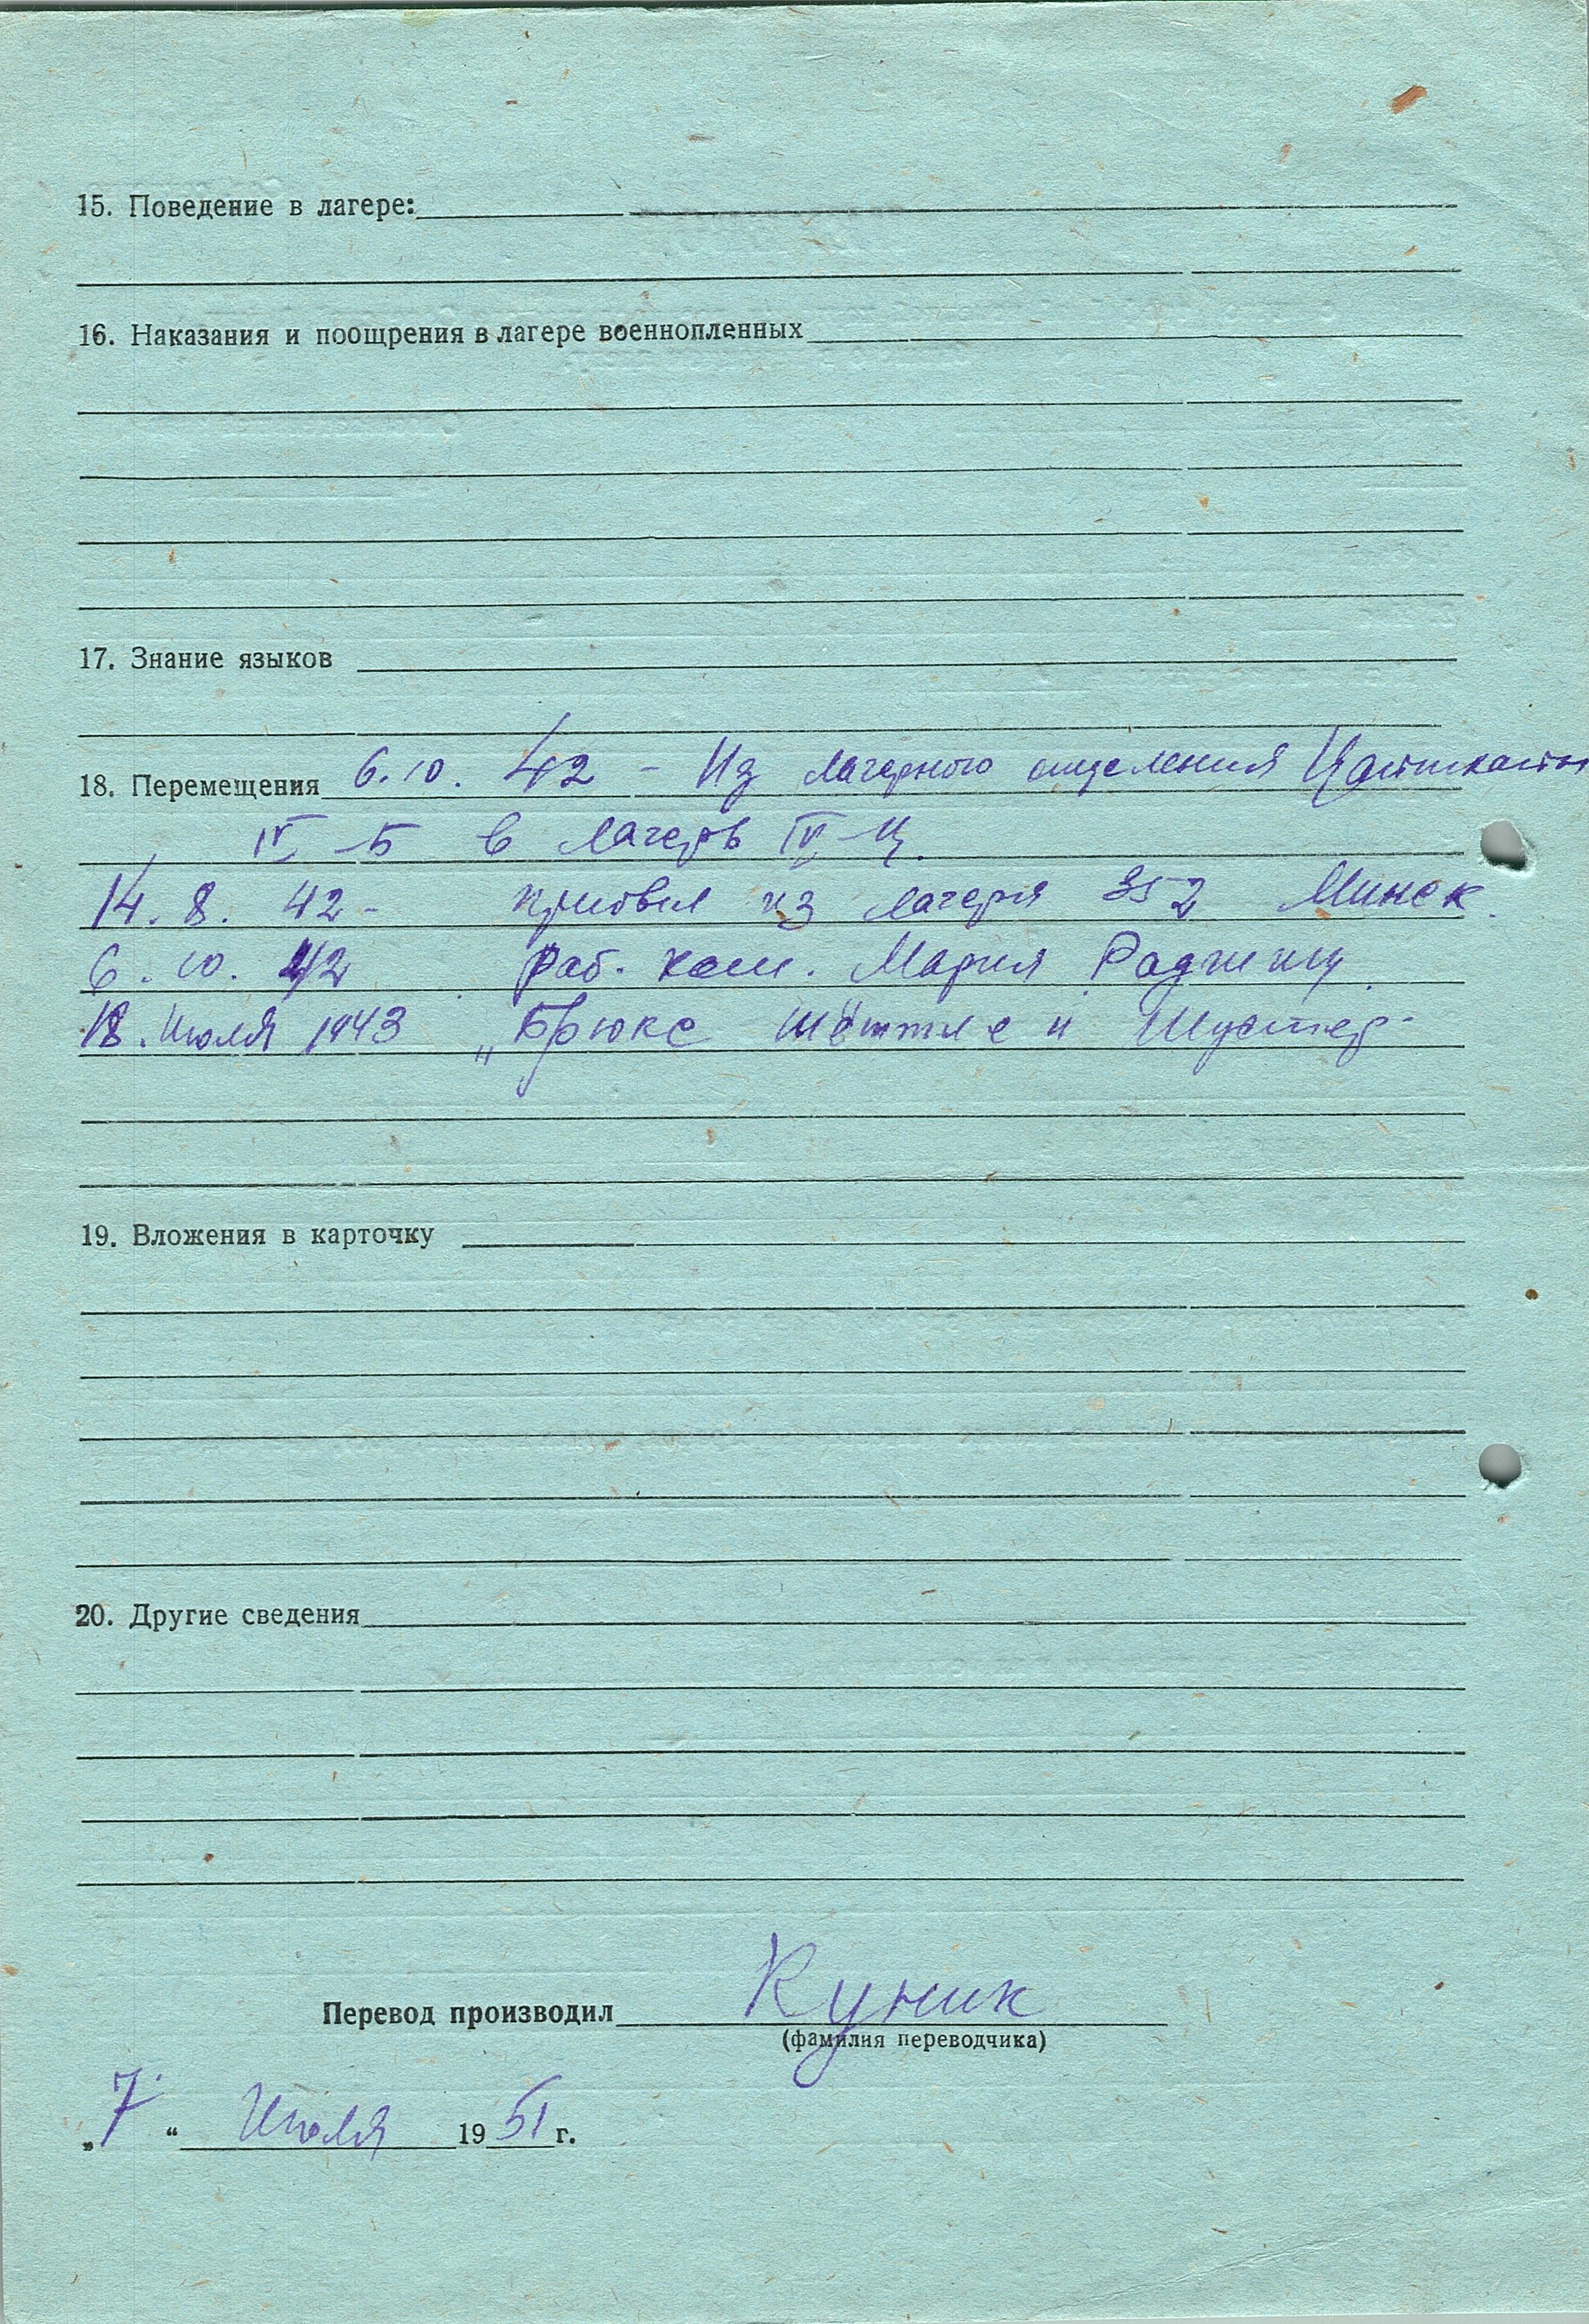 15. Поведение в лагере:
16. Наказания и поощрения в лагере военнопленных
17. Знание языков
18. Перемещения 6.10. 42 - Из лагерного отделения
IV-Б в лагерь IV-Ц.
14. 8. 42 - прибыл из лагеря 352 Минск.
6. 10. 42 раб. ком. Мария Радшиц
18. Июля 1943 „Брюкс Шёттле и Шустер-
19. Вложения в карточку
20. Другие сведения
Перевод производил Куник
(фамилия переводчика)
„7“ Июля 1951 г.